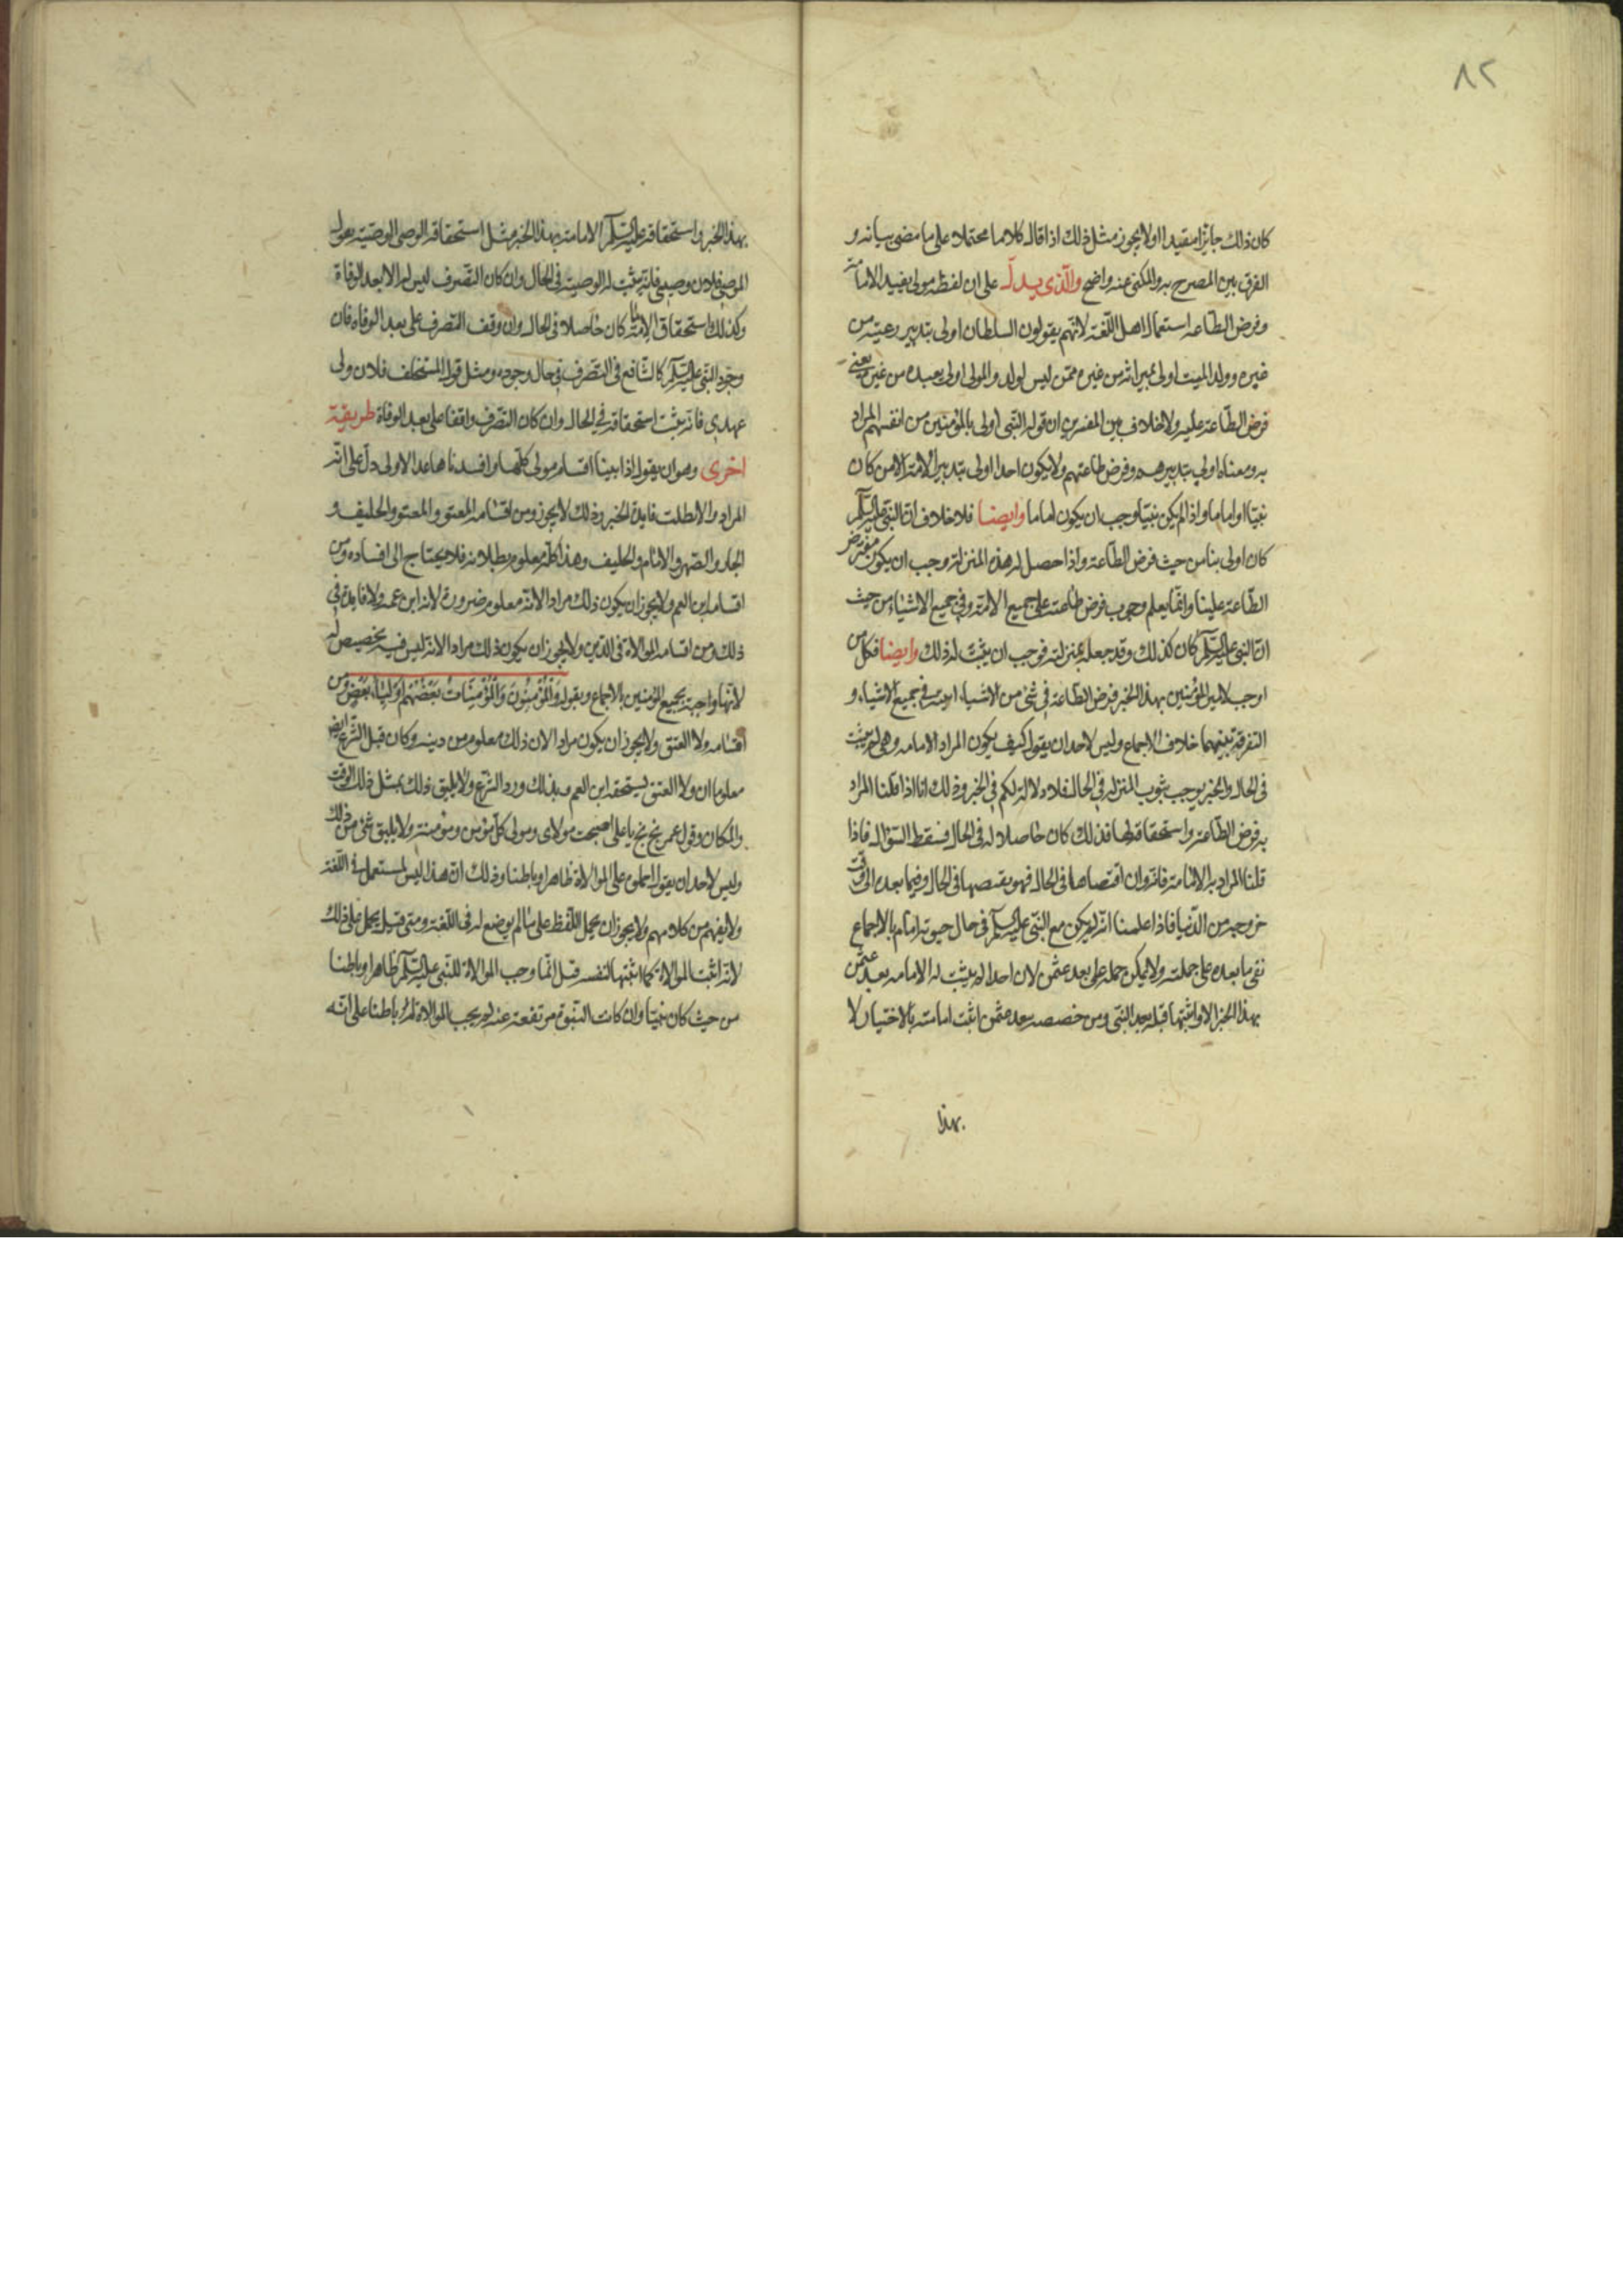 ٨٢
كان ذلك جايزا مفيدا اولا يجوز مثل ذلك اذا قال كلاما محتملا على ما مضى بيانه و
الفرق بين المصرح به والمكنى عنه واضح والذى يدل على ان لفظه مولى يفيد الامامة
وفرض الطاعه استعمال اهل اللغة لانهم يقولون السلطان اولى بتدبير رعيته من
غيره وولد الميت اولى بميراثه من غيره ممن ليس لولد والمولى اولى بعبده من غيره يعنى
فرض الطاعة عليه ولا خلاف بين المفسرين ان قوله النبى اولى بالمؤمنين من انفسهم المراد
به ومعناه اولى بتدبيرهم وفرض طاعتهم ولا يكون احدا اولى بتدبير الامة الا من كان
نبيا او اماما واذا لم يكن نبيا وجب ان يكون اماما وايضا فلا خلاف ان النبى عليه السلم
كان اولى بنا من حيث فرض الطاعة واذا حصل له هذه المنزلة وجب ان يكون مفترض
الطاعة علينا وانما يعلم وجوب فرض طاعته على جميع الامة وفى جميع الاشياء من حيث
ان النبى عليه السلم كان كذلك وقد جعله بمنزلته فوجب ان يثبت له ذلك وايضا فكل من
اوجب لامير المؤمنين بهذا الخبر فرض الطاعة فى شئ من الاشياء اوجبه فى جميع الاشياء و
التفرقة بينهما خلاف الاجماع وليس لاحد ان يقول كيف يكون المراد الامامه وهى لم يثبت
فى الحال والخبر يوجب ثبوت المنزله فى الحال فلا دلالة لكم فى الخبر وذلك انا اذا قلنا المراد
به فرض الطاعة واستحقاقه لها فذلك كان حاصلا له فى الحال فسقط السؤال فاذا
قلنا المراد به الامامة فانه وان اقتضاها فى الحال فهو يقتضيها فى الحال وفيما بعده الى وقت
خروجه من الدنيا فاذا علمنا انه لم يكن مع النبى عليه السلم فى حال حيوته امام بالاجماع
نفى ما بعده على جملته ولا يمكن حمله على بعد عثمن لان احدا لم يثبت له الامامه بعد عثمن
بهذا الخبر الا واثبتها قبله بعد النبى ومن خصصه بعد عثمن اثبت امامته بالاختيار لا
بهذا
بهذا الخبر واستحقاقه عليه السلم الامامة بهذا الخبر مثل استحقاق الوصى الوصية بقول
الموصى فلان وصيى فانه يثبت له الوصية فى الحال وان كان التصرف ليس له الا بعد الوفاة
وكذلك استحقاق الامامة كان حاصلا فى الحال وان وقف التصرف على بعد الوفاه فان
وجود النبى عليه السلم كالمانع فى التصرف فى حال وجوده ومثل قول المستخلف فلان ولى
عهدى فانه يثبت استحقاقه فى الحال وان كان التصرف واقفا على بعد الوفاة طريقة
اخرى وهو ان يقول اذا بينا اقسام مولى كلها وافسدناها عدا الاولى دل على انه
المراد والا بطلت فايدة الخبر وذلك لا يجوز ومن اقسامه المعتق والمعتق والحليف و
الجار والصهر والامام والحليف وهذا كله معلوم بطلانه فلا يحتاج الى افساده ومن
اقسامه ابن العم ولا يجوز ان يكون ذلك مرادا لانه معلوم ضرورة لانه ابن عمه ولا فايدة فى
ذلك ومن اقسامه الموالاة فى الدين ولا يجوز ان يكون ذلك مرادا لانه ليس فيه تخصيص له
لانها واجبة لجميع المؤمنين بالاجماع وبقوله والمؤمنون والمؤمنات بعضهم اولياء بعض ومن
اقسامه ولا العتق ولا يجوز ان يكون مرادا لان ذلك معلوم من دينه وكان قبل الشرع ايضا
معلوما ان ولا العتق يستحقه ابن العم وبذلك ورد الشرع ولا يليق ذلك بمثل ذلك الوقت
والمكان وقول عمر بخ بخ يا على اصبحت مولاى ومولى كل مؤمن ومؤمنة ولا يليق شئ من ذلك
وليس لاحد ان يقول احملوه على الموالاة ظاهرا وباطنا وذلك ان هذا ليس بمستعمل فى اللغة
ولا يفهم من كلامهم ولا يجوز ان يحمل اللفظ على ما لم يوضع له فى اللغة ومتى قيل يحمل على ذلك
لانه اثبت الموالاة كما اثبتها لنفسه قيل انما وجب الموالاة للنبى عليه السلم ظاهرا وباطنا
من حيث كان نبيا وان كانت النبوة مرتفعة عنه لم يجب الموالاة له باطنا على انه